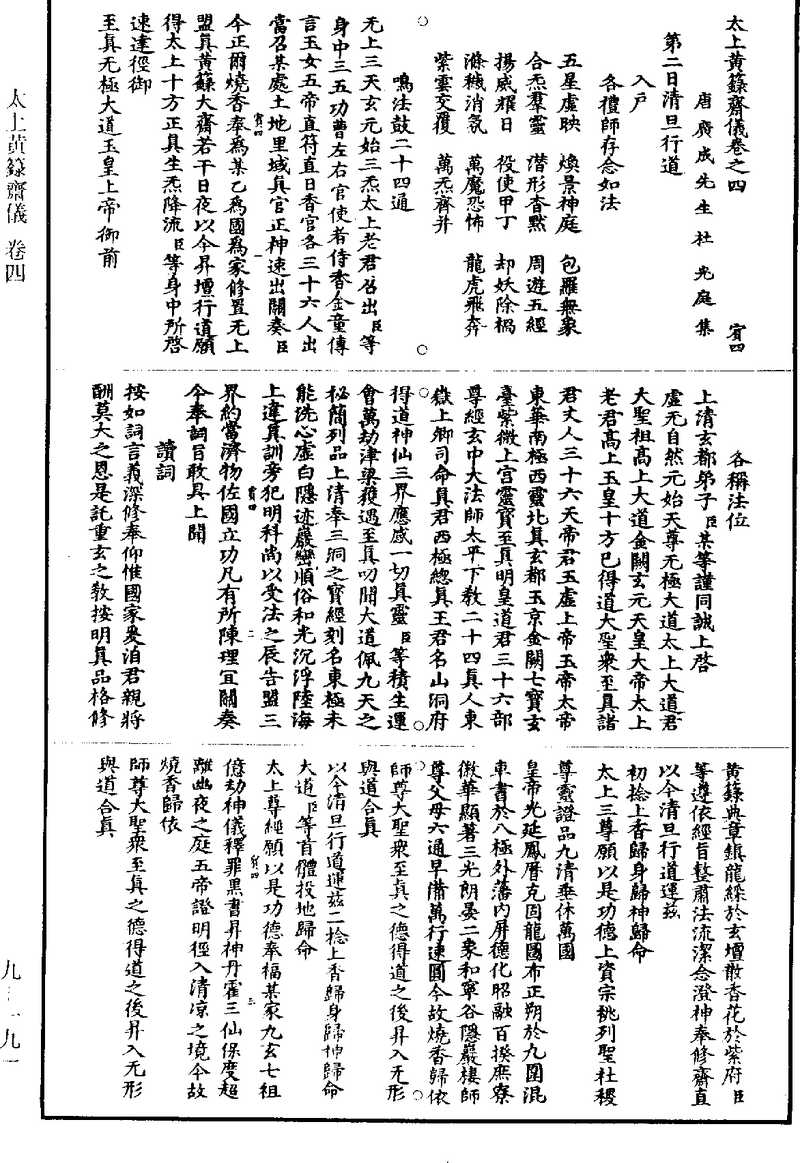 太上黃籙齋儀卷之四 賓四
唐廣成先生杜光庭集
第二日清旦行道
入戶
各禮師存念如法
五星虛映 煥景神庭 包羅無象
合炁羣靈 潛形杳默 周遊五經
揚威耀日 役使甲丁 却妖除禍
滌穢消氛 萬魔恐怖 龍虎飛奔
紫雲交覆 萬炁齊并
鳴法鼓二十四通
无上三天玄元始三炁太上老君召出臣等
身中三五功曹左右官使者侍香金童傳
言玉女五帝直符直日香官各三十六人出
當召某處土地里域真官正神速出關奏臣
今正爾燒香奉為某乙為國為家修置无上
盟真黃籙大齋若干日夜以今昇壇行道願
得太上十方正真生炁降流臣等身中所啓
速達徑御
至真无極大道玉皇上帝御前
各稱法位
上清玄都弟子臣某等謹同誠上啓
虛无自然元始天尊无極大道太上大道君
大聖祖高上大道金闕玄元天皇大帝太上
老君高上玉皇十方已得道大聖衆至真諸
君丈人三十六天帝君玉虛上帝玉帝太帝
東華南極西靈北真玄都玉京金闕七寶玄
臺紫微上宮靈寶至真明皇道君三十六部
尊經玄中大法師太平下教二十四真人東
嶽上卿司命真君西極總真王君名山洞府
得道神仙三界應感一切真靈臣等積生運
會萬劫津梁獲遇至真叨聞大道佩九天之
祕簡列品上清奉三洞之寶經刻名東極未
能洗心虛白隱迹巖巒順俗和光沉浮陸海
上違真訓旁犯明科尚以受法之辰告盟三
界約當濟物佐國立功凡有所陳理宜關奏
今奉詞旨敢具上聞
讀詞
按如詞言義深修奉仰惟國家爰洎君親將
酬莫大之恩是託重玄之教按明真品格修
黃籙典章鎮龍綵於玄壇散香花於紫府臣
等遵依經旨整肅法流潔念澄神奉修齋直
以今清旦行道運茲
初捻上香歸身歸神歸命
太上三尊願以是功德上資宗祧列聖社稷
尊靈證品九清垂休萬國
皇帝光延鳳曆克固龍圖布正朔於九圍混
車書於八極外藩内屏德化昭融百揆庶寮
徽華顯著三光朗晏二象和寧谷隱巖棲師
尊父母六通早備萬行速圓今故燒香歸依
師尊大聖衆至真之德得道之後昇入无形
與道合真
以今清旦行道運茲二捻上香歸身歸神歸命
大道臣等首體投地歸命
太上尊經願以是功德奉福某家九玄七祖
億劫神儀釋罪黑書昇神丹霍三仙保度超
離幽夜之庭五帝證明徑入清涼之境今故
燒香歸依
師尊大聖衆至真之德得道之後昇入无形
與道合真
太上黃籙齋儀 卷四